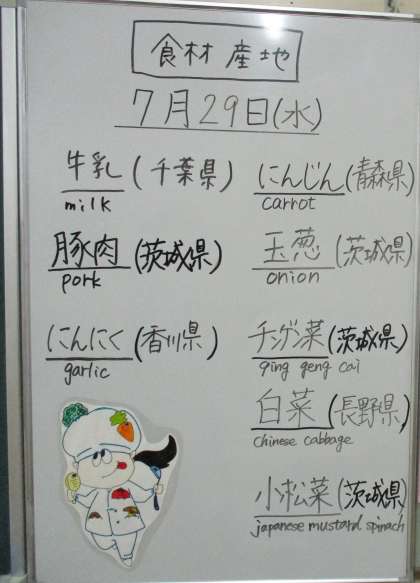 食材産地
7月29日(水)
牛乳(千葉県)
milk
にんじん(青森県)
carrot
豚肉(茨城県)
pork
玉葱(茨城県)
onion
にんにく(香川県)
garlic
チンゲン菜(茨城県)
qing geng cai
白菜(長野県)
chinese cabbage
小松菜(茨城県)
japanese mustard spinach